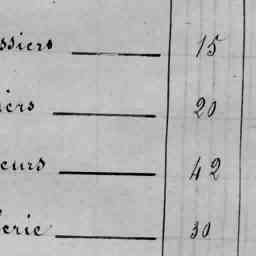 ssiers 15
iers 20
eurs 42
erie 30